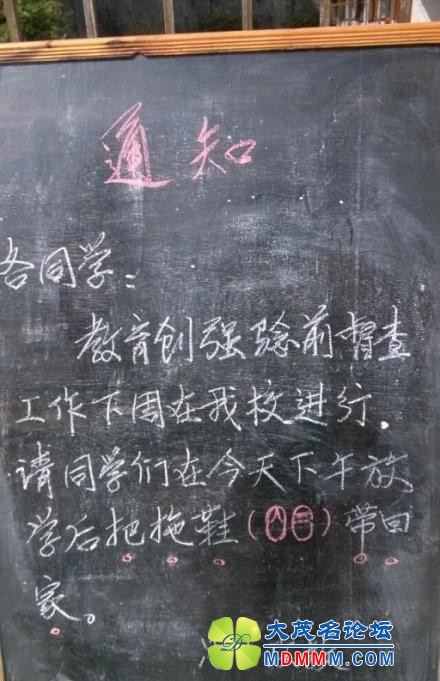 通知
各同学:
教育创强验前督查
工作下周在我校进行.
请同学们在今天下午放
学后把拖鞋()带回
家。
大茂名论坛
MDMMM.COM